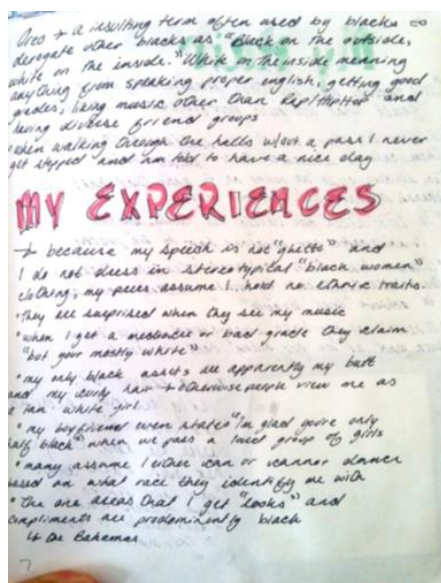 Oreo → a insulting term often used by blacks to
derogate other blacks as "Black on the outside,
white on the inside." White on the inside meaning
anything from speaking proper english, getting good
grades, liking music other than Rap/HipHop and
having diverse friend groups
when walking through the halls w/out a pass I never
get stopped and am told to have a nice day
MY EXPERIENCES
→ because my speech is not "ghetto" and
I do not dress in stereotypical "black women"
clothing, my peers assume I hold no ethnic traits.
• they are surprised when they see my music
• when I get a mediocre or bad grade they claim
"but your mostly white"
• my only black assets are apparently my butt
and my curly hair → otherwise people view me as
a tan white girl
• my boyfriend even stated "I'm glad you're only
half black" when we pass a loud group of girls
• many assume I either can or cannot dance
based on what race they identify me with
• the one areas that I get "looks" and
compliments are predominently black
↳ the Bahamas
7